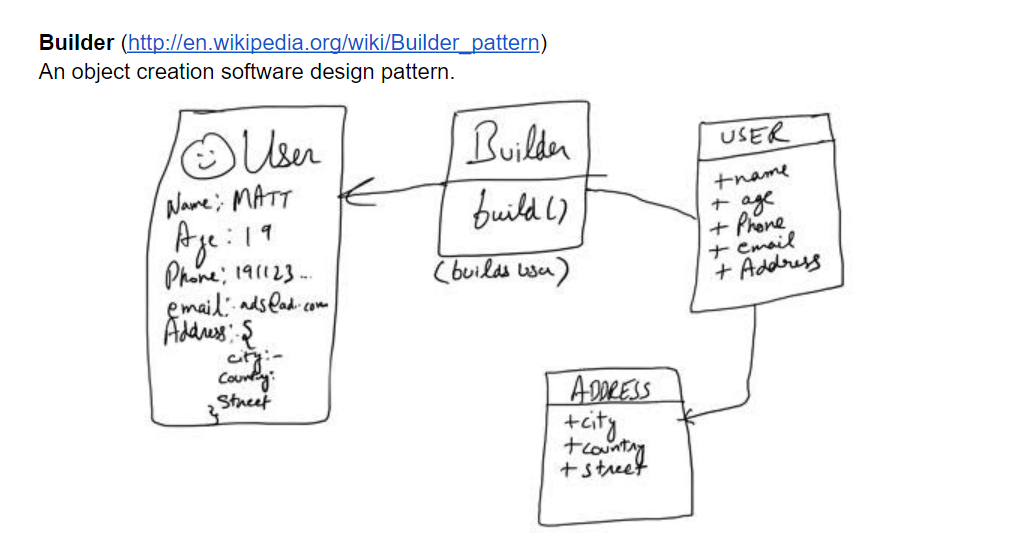 Builder (http://en.wikipedia.org/wiki/Builder_pattern)
An object creation software design pattern.
User
Name: MATT
Age: 19
Phone: 191123...
email: ads@ad.com
Address: {
city:-
Country:
Street
}
Builder
build()
(builds user)
USER
+name
+ age
+ Phone
+ email
+ Address
ADDRESS
+city
+country
+street